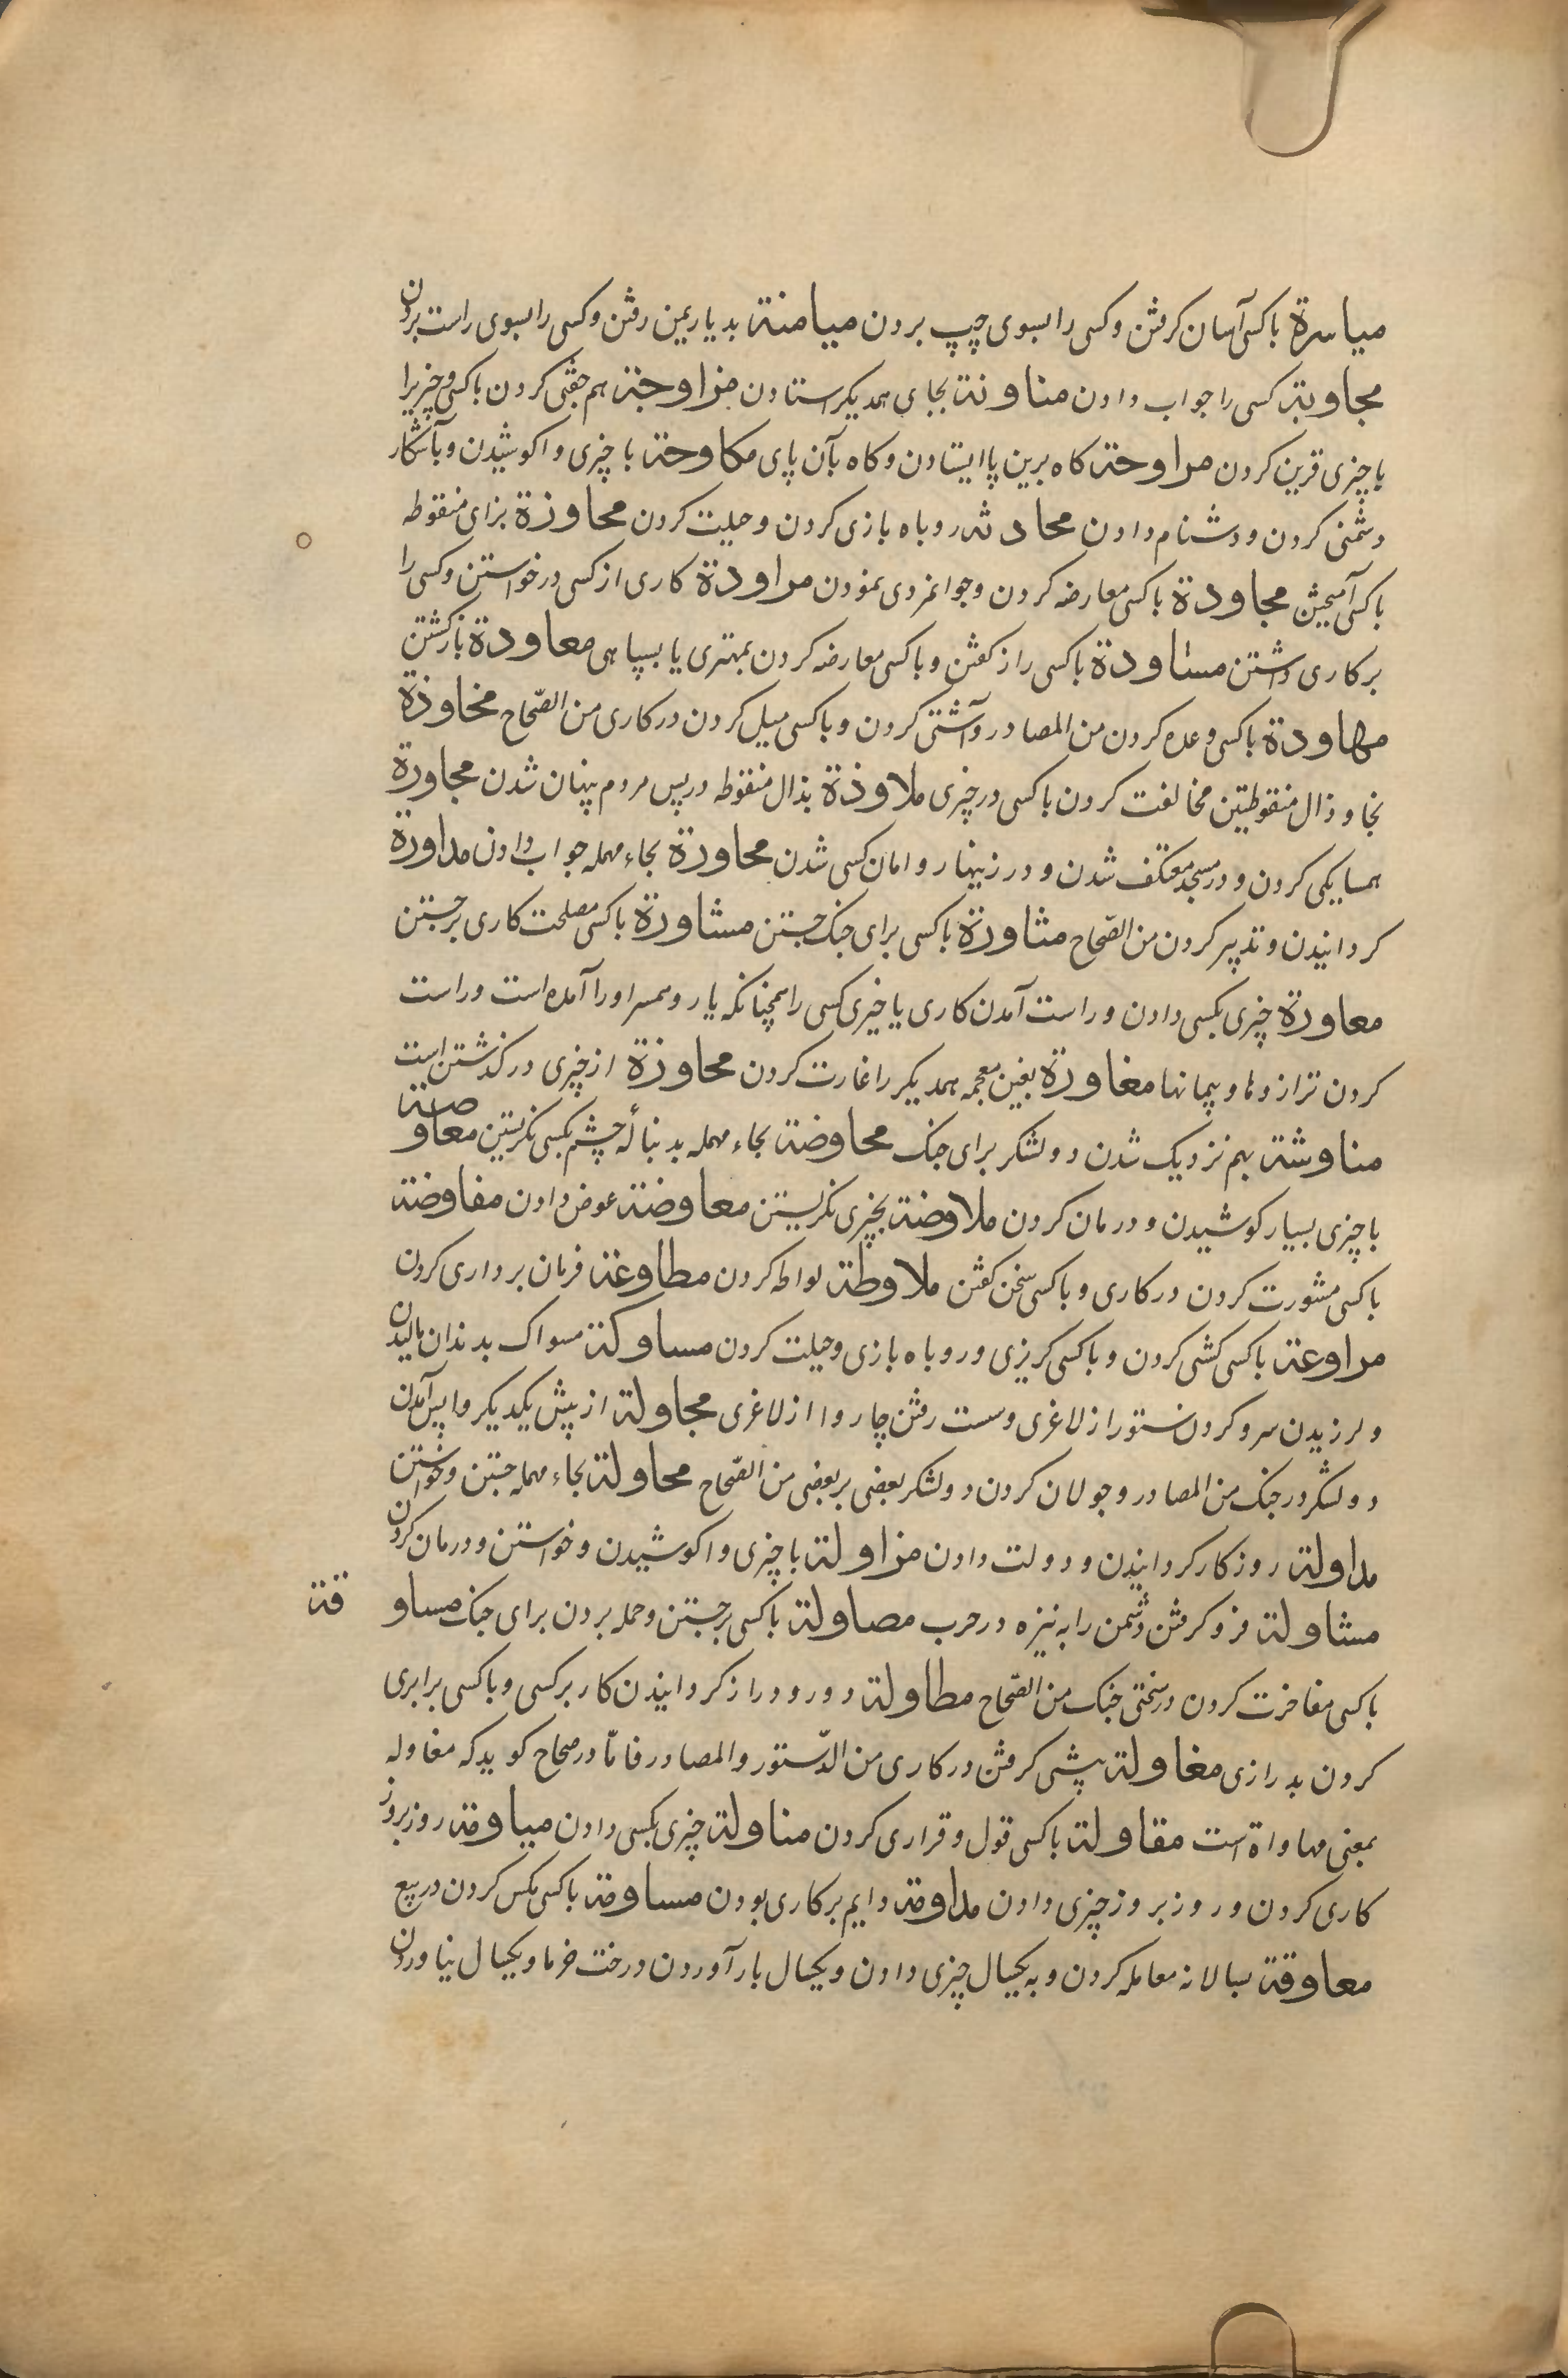 میاسرة با کسی آسان کرفتن و کسی را بسوی چپ بردن میامنة بدیار یمن رفتن و کسی را بسوی راست بردن
مجاوبة کسی را جواب دادن مناوبة بجای همدیکر استادن مزاوجة هم جفتی کردن با کسی و چیزیرا
با چیزی قرین کردن مراوحة کاه برین پا ایستادن و کاه بآن پای مکاوحة با چیزی واکوشیدن و بآشکار
دشمنی کردن و دشنام دادن محادثه روباه بازی کردن و حیلت کردن محاوزة بزای منقوطه
با کسی آمیختن مجاودة با کسی معارضه کردن و جوانمردی نمودن مراودة کاری از کسی درخواستن و کسی را
بر کاری داشتن مساودة با کسی راز کفتن و با کسی معارضه کردن بمهتری یا بسپاهی معاودة بازکشتن
مهاودة با کسی وعده کردن من المصادر و آشتی کردن و با کسی میل کردن در کاری من الصّحاح مخاوذة
بخا و ذال منقوطتین مخالفت کردن با کسی در چیزی ملاوذة بذال منقوطه در پس مردم پنهان شدن مجاورة
همسایکی کردن و در مسجد معتکف شدن و در زینهار و امان کسی شدن محاورة بحاء مهمله جواب دادن مداورة
کردانیدن و تدبیر کردن من الصّحاح مثاورة با کسی برای جنک جستن مشاورة با کسی مصلحت کاری بر جستن
معاورة چیزی بکسی دادن و راست آمدن کاری یا خیری کسی را همچنانکه یار و همسر او را آمده است و راست
کردن ترازوها و پیمانها مغاورة بغین معجمه همدیکر را غارت کردن محاوزة از چیزی درکذشتن است
مناوشة بهم نزدیک شدن دو لشکر برای جنک محاوضة بحاء مهمله بدنبالۀ چشم بکسی نکریستن معاوصة
با چیزی بسیار کوشیدن و درمان کردن ملاوضة بچیزی نکریستن معاوضة عوض دادن مفاوضة
با کسی مشورت کردن در کاری و با کسی سخن کفتن ملاوطة لواطه کردن مطاوعة فرمان برداری کردن
مراوغة با کسی کشی کردن و با کسی کریزی و روباه بازی و حیلت کردن مساوکة مسواک بدندان مالیدن
و لرزیدن سر و کردن ستور از لاغری و سست رفتن چاروا از لاغری مجاولة از پیش یکدیکر واپس آمدن
دو لشکر در جنک من المصادر و جولان کردن دو لشکر بعضی بر بعضی من الصّحاح محاولة بحاء مهمله جستن و خواستن
مداولة روزکار کردانیدن و دولت دادن مزاولة با چیزی واکوشیدن و خواستن و درمان کردن
مشاولة فرو کرفتن دشمن را به نیزه در حرب مصاولة با کسی برجستن و حمله بردن برای جنک مساوقة
با کسی مفاخرت کردن در سختی جنک من الصّحاح مطاولة دور و دراز کردانیدن کار بر کسی و با کسی برابری
کردن بدرازی مغاولة پیشی کرفتن در کاری من الدّستور و المصادر فامّا در صحاح کوید که مغاوله
بمعنی مهاواة است مقاولة با کسی قول و قراری کردن مناولة چیزی بکسی دادن میاومة روز بروز
کاری کردن و روز بروز چیزی دادن مداومة دایم بر کاری بودن مساومة با کسی مکس کردن در بیع
معاوقة بسالانه معامله کردن و به یکسال چیزی دادن و یکسال بار آوردن درخت خرما و یکسال نیاوردن